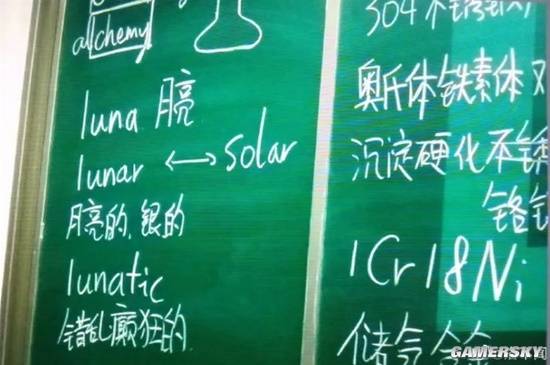 alchemy
luna 月亮
lunar ⟷ solar
月亮的、银的
lunatic
错乱癫狂的
304不锈钢
奥氏体铁素体双
沉淀硬化不锈
铬
1Cr18Ni
储氢合金
GAMERSKY